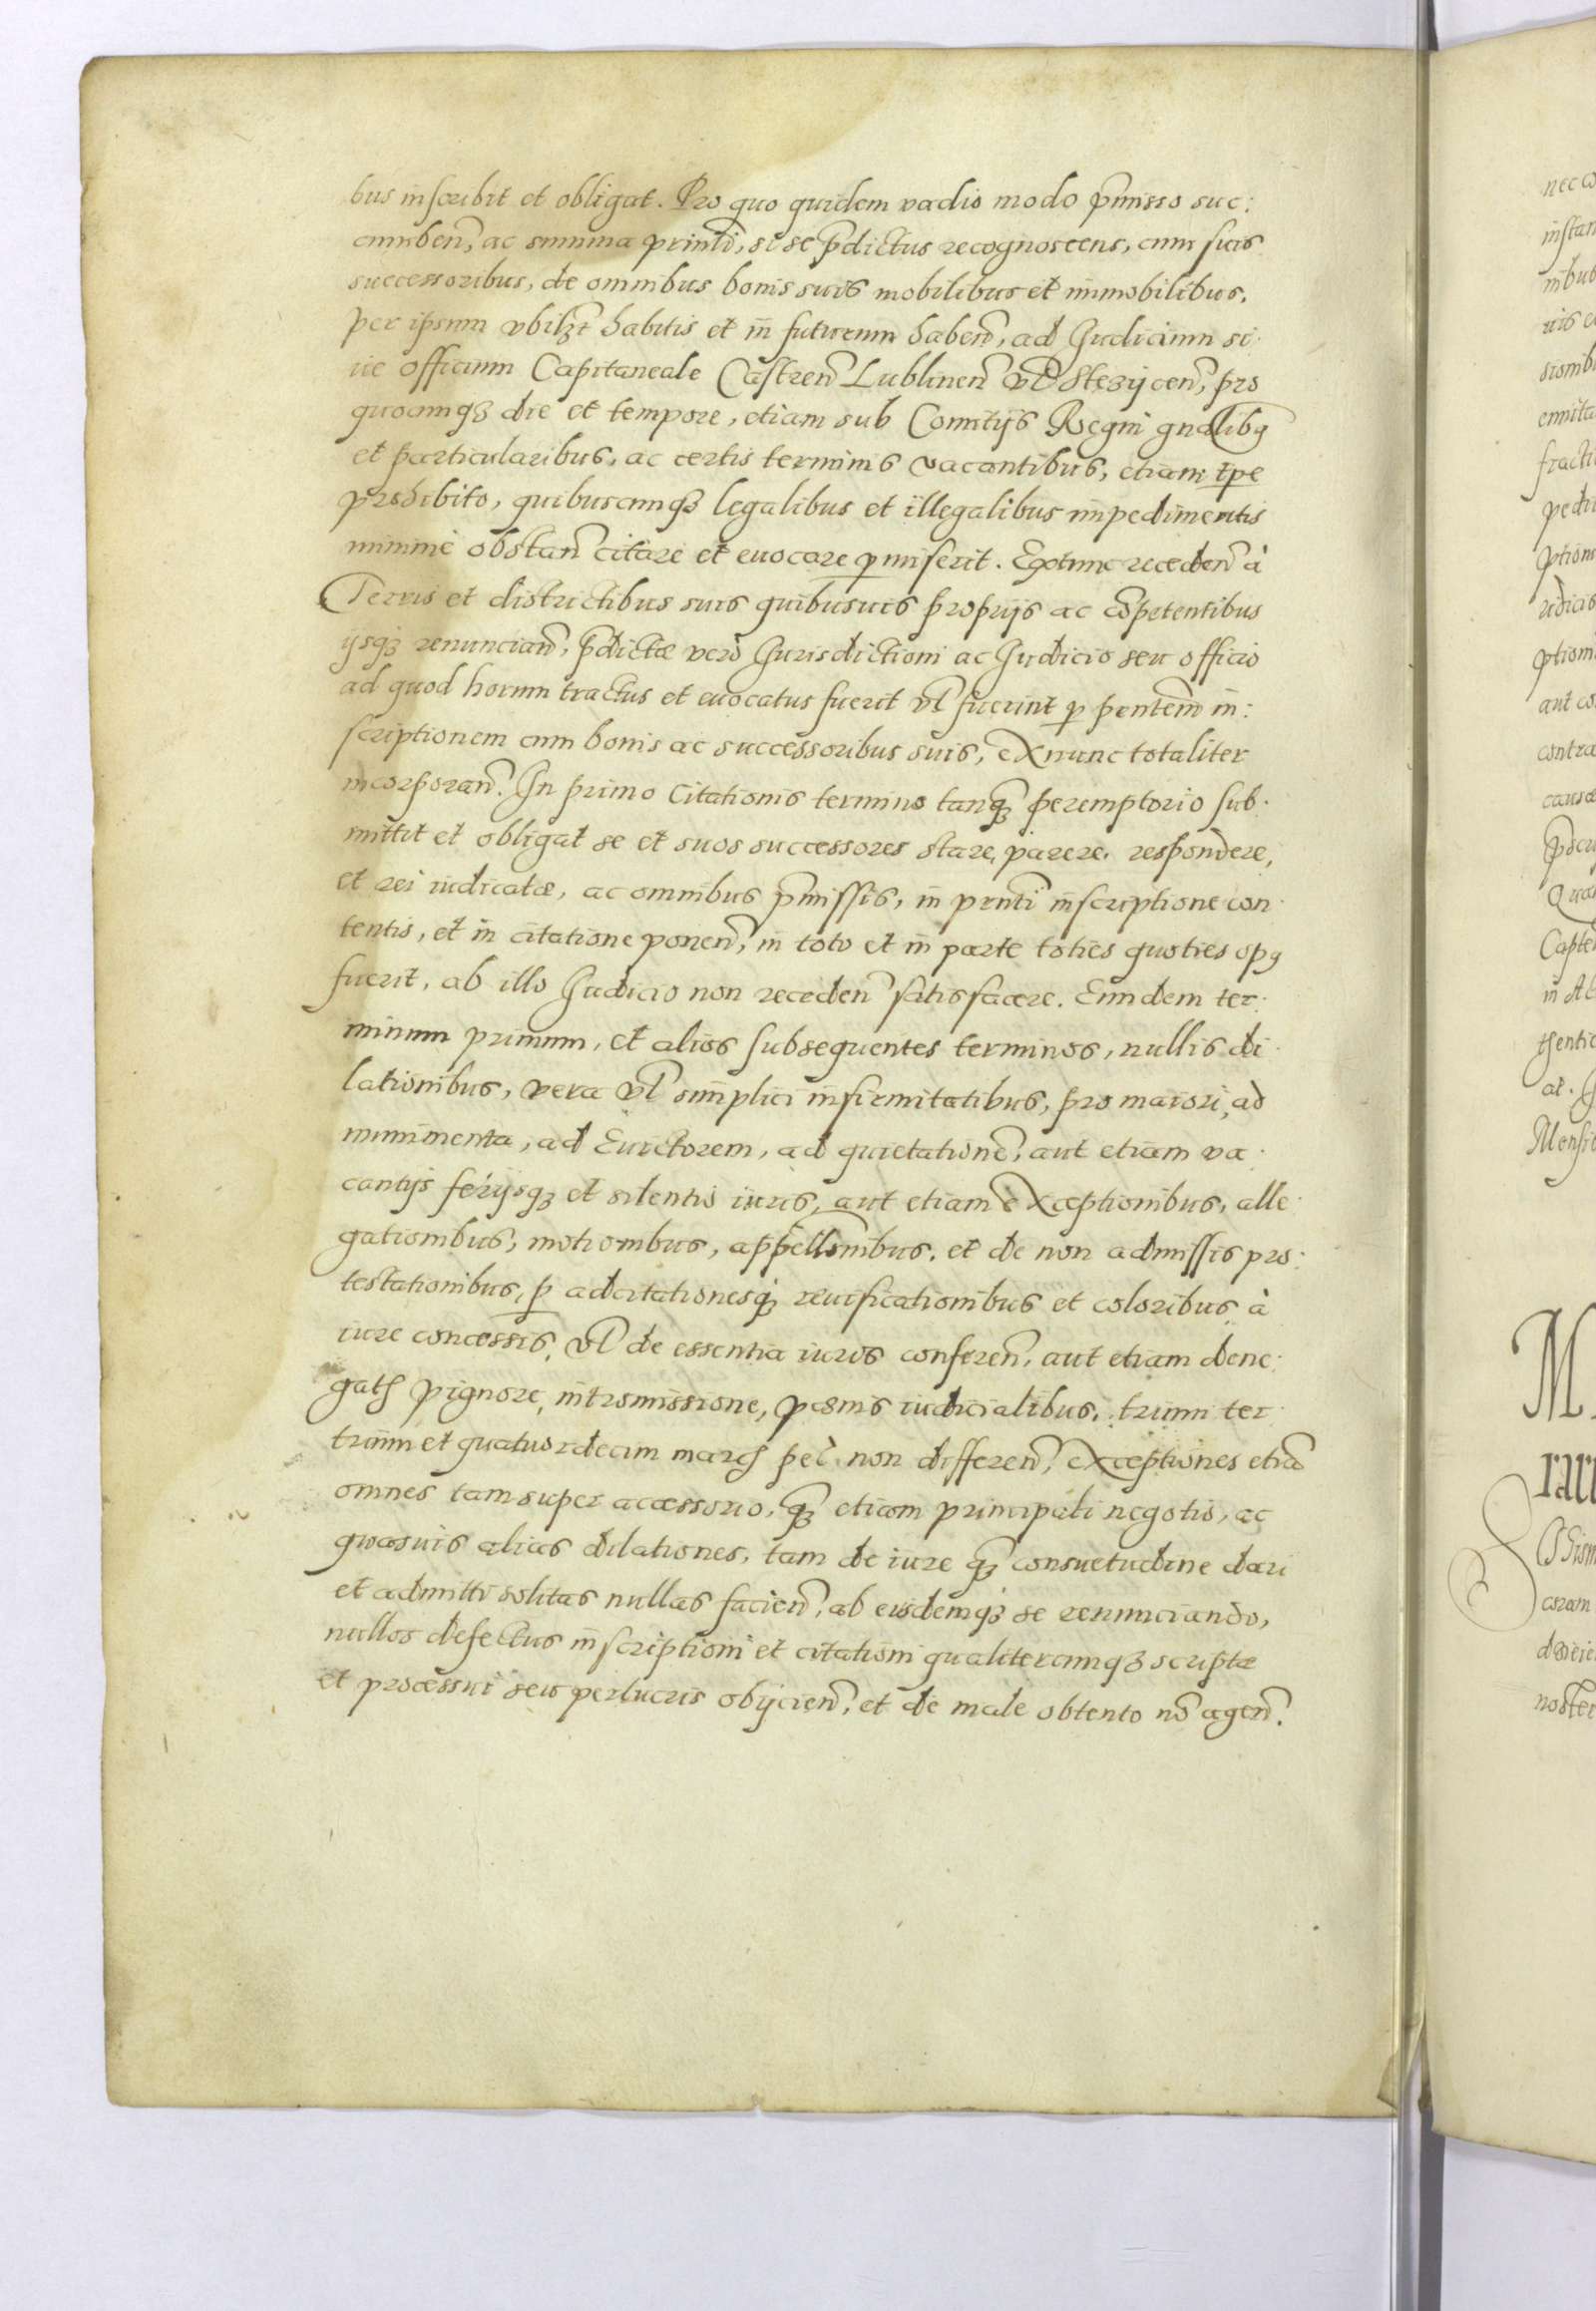 bus inscribit et obligat. Pro quo quidem vadio modo p̄misso suc:
cumben̄, ac summa prin̄li, si se p̄dictus recognoscens, cum suis
successoribus, de omnibus bonis suis mobilibus et immobilibus,
per ipsum vbilꝫt habitis et in futurum haben̄, ad Judicium si
ue officium Capitaneale Castren̄ Lublinen̄ vl̄ Stezijcen̄, pro
quocunqꝫ die et tempore, etiam sub Comitijs Regni gn̄alibꝯ
et particularibus, ac certis terminis vacantibus, etiam tp̄e
prohibito, quibuscunqꝫ legalibus et illegalibus impedimentis
minimè obstan̄ citare et euocare ꝑmiserit. Extunc receden̄ à
Terris et districtibus suis quibusuis proprijs ac cōpetentibus
ijsqꝫ renuncian̄, p̄dictæ verò Jurisdictioni ac Judicio seu officio
ad quod horum tractus et euocatus fuerit vl̄ fuerint ꝑ pn̄tem in:
scriptionem cum bonis ac successoribus suis, ex nunc totaliter
incorporan̄. In primo Citationis termino tanqꝫ peremptorio sub
mittit et obligat se et suos successores stare, parere, respondere,
et rei iudicatæ, ac omnibus p̄missis, in pn̄ti inscriptione con
tentis, et in citatione ponen̄, in toto et in parte toties quoties opꝯ
fuerit, ab illo Judicio non receden̄ satisfacere. Eundem ter
minum primum, et alios subsequentes terminos, nullis di
lationibus, vera vl̄ simplici infirmitatibus, pro maiori, ad
munimenta, ad Euictorem, ad quietationē, aut etiam va
cantijs ferijsqꝫ et silentio iuris, aut etiam exceptionibus, alle
gationibus, motionibus, appellōnibus, et de non admissis pro:
testationibus, ꝑ adcitationesqꝫ reuificationibus et coloribus à
iure concessis, vl̄ de essentia iuris conferen̄, aut etiam dene:
gatꝭ pignore, intromissione, pœnis iudicialibus, trium ter
trium et quatuordecim marcꝭ pec̄. non differen̄, exceptiones etiā
omnes tam super accessorio, qꝫ etiam principali negotio, ac
quasuis alias dilationes, tam de iure qꝫ consuetudine dari
et admitti solitas nullas facien̄, ab eisdemqꝫ se renunciando,
nullos defectus inscriptioni et citationi qualitercunqꝫ scriptæ
et processui seu perlucris obijcien̄, et de male obtento nō agen̄.